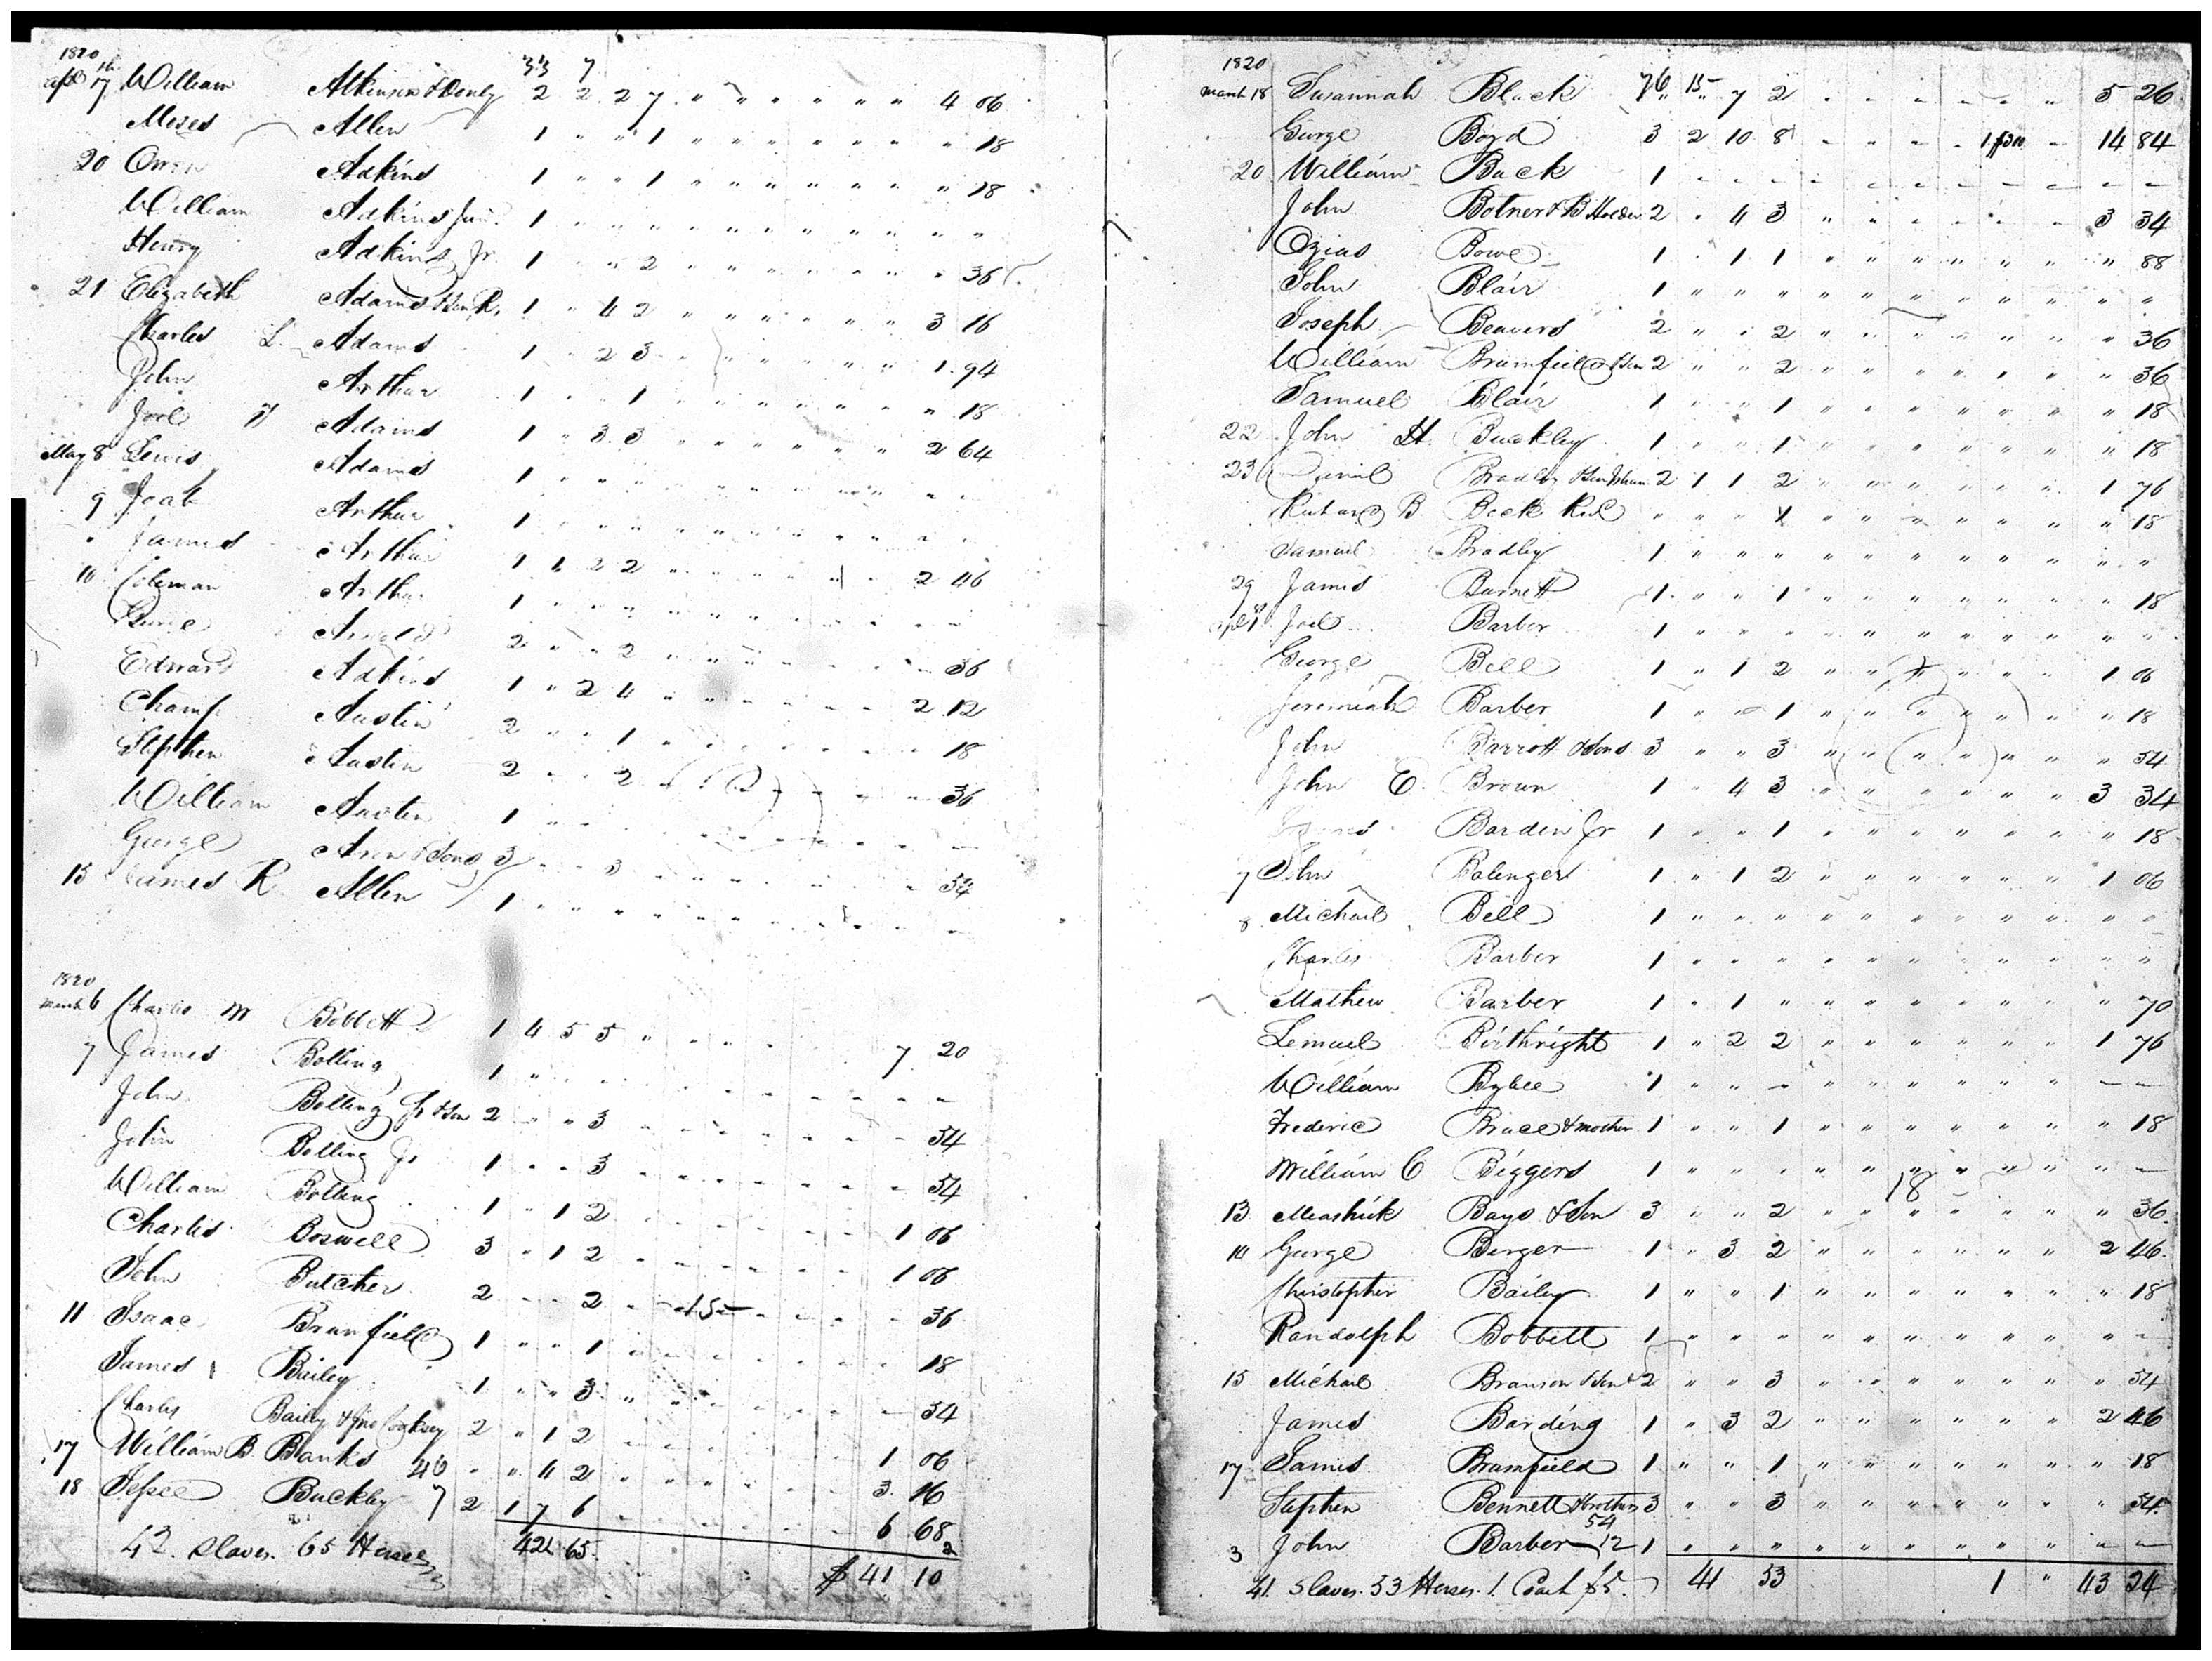 1820 33 7
apl 17th William Atkinson & Conly 2 2 2 7 " " " " " " " 4 06
Moses Allen 1 " " 1 " " " " " " " " 18
20 Owen Adkins 1 " " 1 " " " " " " " " 18
William Adkins Jun. 1 " " " " " " " " " " " "
Henry Adkins Jr 1 " " 2 " " " " " " " " 36
21 Elizabeth Adams & Son R. 1 " 4 2 " " " " " " " 3 16
Charles L. Adams 1 " 2 3 " " " " " " " 1 94
John Arthur 1 " " 1 " " " " " " " " 18
Joel Y Adams 1 " 3 3 " " " " " " " 2 64
May 8 Lewis Adams 1 " " " " " " " " " " " "
9 Joab Arthur 1 " " " " " " " " " " " "
" James Arthur 1 1 2 2 " " " " " " " 2 46
10 Coleman Arthur 1 " " " " " " " " " " " "
Arnold 2 " " 2 " " " " " " " " 36
Edward Adkins 1 " 2 4 " " " " " " " 2 12
Champ Austin 2 " " 1 " " " " " " " " 18
Stephen Austin 2 " " 2 " " " " " " " " 36
William Austin 1 " " " " " " " " " " " "
George Aron & Sons 3 " " 3 " " " " " " " " 54
15 James R Allen 1 " " " " " " " " " " " "
1820
March 6 Charles M Bobbett 1 4 5 5 " " " " 7 20
7 James Bolling 1 " " " " " " " " " "
John Bolling Sr & Son 2 " " 3 " " " " " " 54
John Bolling Jr 1 " " 3 " " " " " " 54
William Bolling 1 " 1 2 " " " " " 1 06
Charles Boswell 3 " 1 2 " " " " " 1 06
John Butcher 2 " " 2 " " " " " 36
11 Isaac Bramfield 1 " " 1 " " " " " " 18
James Bailey 1 " " 3 " " " " " " 54
Charles Baily & Jno Cooksey 2 " 1 2 " " " " " 1 06
17 William B. Banks 40 " " 4 2 " " " " " 3 16
18 Jesse Buckley 7 2 1 7 6 " " " " " 6 68
42 Slaves. 65 Horses 42 65 $ 41 10
1820 76 15
March 18 Susannah Black " " 7 2 " " " " " " " 5 26
George Boyd 3 2 10 8 " " " " 1 $300 " 14 84
20 William Back 1 " " " " " " " " " " " "
John Botner & B Holder 2 " 4 3 " " " " " " " 3 34
Ozias Bowe 1 " 1 1 " " " " " " " " 88
John Blair 1 " " " " " " " " " " " "
Joseph Beavers 2 " " 2 " " " " " " " " 36
William Bramfield & Son 2 " " 2 " " " " " " " " 36
Samuel Blair 1 " " 1 " " " " " " " " 18
22 John H. Buckley 1 " " 1 " " " " " " " " 18
23 Daniel Bradley 2 1 1 2 " " " " " " " 1 76
Richard B Beck " " " 1 " " " " " " " " 18
Samuel Bradley 1 " " " " " " " " " " " "
29 James Burnett 1 " " 1 " " " " " " " " 18
apl 1st Joel Barber 1 " " " " " " " " " " " "
George Bell 1 " 1 2 " " " " " " " 1 06
Jeremiah Barber 1 " " 1 " " " " " " " " 18
John Barrott & Sons 3 " " 3 " " " " " " " " 54
John E. Brown 1 " 4 3 " " " " " " " 3 34
James Barden Jr 1 " " 1 " " " " " " " " 18
7 John Balenger 1 " 1 2 " " " " " " " 1 06
8 Michael Bell 1 " " " " " " " " " " " "
Charles Barber 1 " " " " " " " " " " " "
Mathew Barber 1 " 1 " " " " " " " " " 70
Lemuel Birthright 1 " 2 2 " " " " " " " 1 76
William Bybee 1 " " " " " " " " " " " "
Frederic Bruce & mother 1 " " 1 " " " " " " " " 18
William C Biggers 1 " " " " " " " " " " " "
18
13 Meashick Bays & Son 3 " " 2 " " " " " " " " 36
14 George Berger 1 " 3 2 " " " " " " " 2 46
Christopher Bailey 1 " " 1 " " " " " " " " 18
Randolph Bobbett 1 " " " " " " " " " " " "
15 Michael Branson & Son 2 " " 3 " " " " " " " " 54
James Barding 1 " 3 2 " " " " " " " 2 46
17 James Bramfield 1 " " 1 " " " " " " " " 18
Stephen Bennett & brothers 3 " " 3 " " " " " " " " 54
54
3 John Barber 12 1 " " " " " " " " " " " "
41 Slaves. 53 Horses. 1 Coach $5. 41 53 1 " 43 24